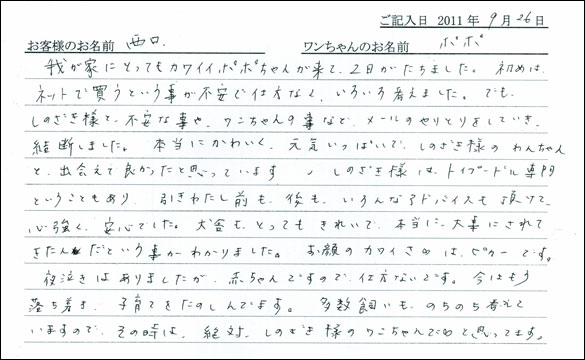 ご記入日 2011 年 9 月 26 日
お客様のお名前 西口. ワンちゃんのお名前 ポポ
我が家にとってもカワイイポポちゃんが来て、2日がたちました。 初めは、
ネットで買うという事が不安で仕方なく、いろいろ考えました。でも、
しのざき様と、不安な事や、ワンちゃんの事など、メールのやりとりをしていき、
結断しました。 本当にかわいく、元気いっぱいで、しのざき様のわんちゃん
と、出会えて良かったと思っています しのざき様は、トイプードル専門
ということもあり、引きわたし前も、後も、いろんなアドバイスも頂けて、
心強く、安心でした。犬舎も、とってもきれいで、本当に、大事にされて
きたんだという事がわかりました。 お顔のカワイさNo は、ピカ一です。
夜泣きはありましたが、赤ちゃんですので、仕方ないです。今はもう
落ち着き、子育てをたのしんでます。 多数飼いも、のちのち考えて
いますので、その時は、絶対、しのざき様のワンちゃんでと思ってます。